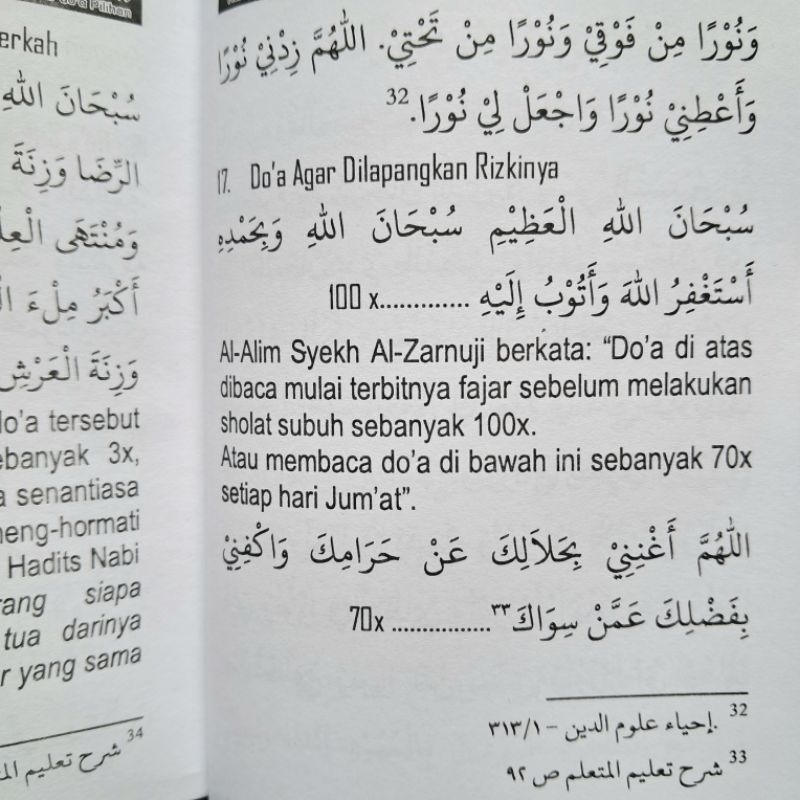 do'a Pilihan
erkah
سُبْحَانَ اللهِ
الرِّضَا وَزِنَةَ
وَمُنْتَهَى
أَكْبَرُ مِلْءَ
وَزِنَةَ الْعَرْشِ
do'a tersebut
ebanyak 3x,
a senantiasa
meng-hormati
Hadits Nabi
rang siapa
tua darinya
r yang sama
34 شرح تعليم
وَنُوْرًا مِنْ فَوْقِيْ وَنُوْرًا مِنْ تَحْتِيْ. اَللّٰهُمَّ زِدْنِيْ نُوْرًا
وَأَعْطِنِيْ نُوْرًا وَاجْعَلْ لِيْ نُوْرًا.32
17. Do'a Agar Dilapangkan Rizkinya
سُبْحَانَ اللهِ الْعَظِيْمِ سُبْحَانَ اللهِ وَبِحَمْدِهِ
أَسْتَغْفِرُ اللهَ وَأَتُوْبُ إِلَيْهِ ............. 100 x
Al-Alim Syekh Al-Zarnuji berkata: “Do'a di atas
dibaca mulai terbitnya fajar sebelum melakukan
sholat subuh sebanyak 100x.
Atau membaca do'a di bawah ini sebanyak 70x
setiap hari Jum'at”.
اَللّٰهُمَّ أَغْنِنِيْ بِحَلَالِكَ عَنْ حَرَامِكَ وَاكْفِنِيْ
بِفَضْلِكَ عَمَّنْ سِوَاكَ٣٣ ................ 70x
32 .إحياء علوم الدين – ٣١٣/١
33 شرح تعليم المتعلم ص ٩٢